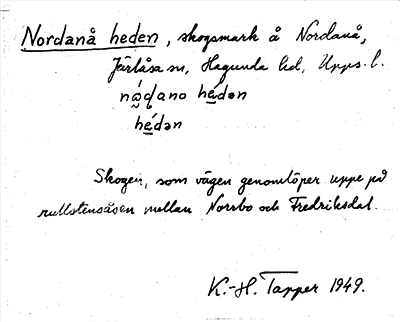 Nordanå heden, skogsmark å Nordanå,
Järlåsa sn, Hagunda hd, Upps. l.
hédən
Skogen, som vägen genomlöper uppe på
rullstensåsen mellan Norrbo och Fredriksdal.
K.-H. Tapper 1949.